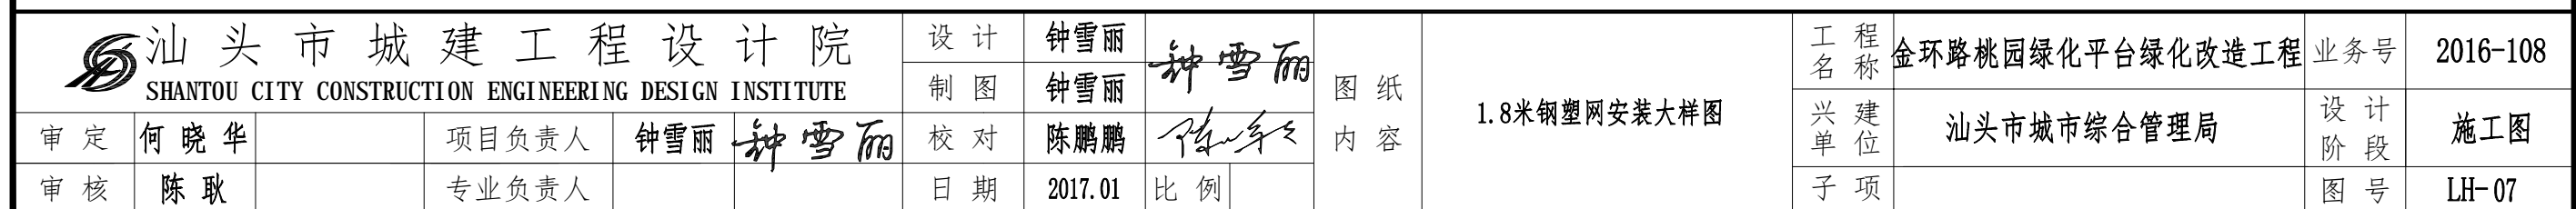 汕头市城建工程设计院
SHANTOU CITY CONSTRUCTION ENGINEERING DESIGN INSTITUTE
审定 何晓华 项目负责人 钟雪丽 钟雪丽
审核 陈耿 专业负责人
设计 钟雪丽 钟雪丽
制图 钟雪丽
校对 陈鹏鹏
日期 2017.01 比例
图纸
内容
1.8米钢塑网安装大样图
工程
名称
金环路桃园绿化平台绿化改造工程
业务号 2016-108
兴建
单位
汕头市城市综合管理局
设计
阶段
施工图
子项 图号 LH-07